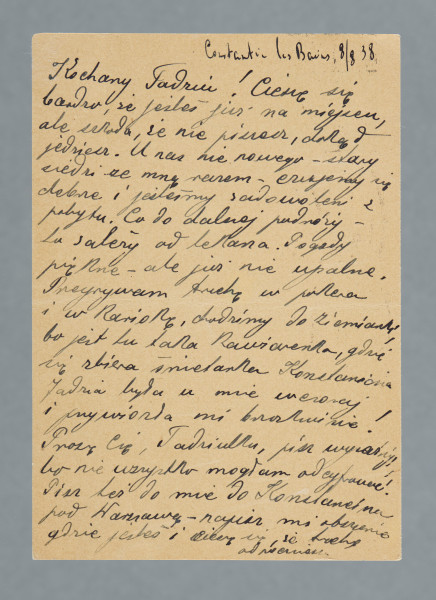 Constantin les Bains, 8/8 38.
Kochany Tadziu! Cieszę się
bardzo, że jesteś już na miejscu,
ale szkoda, że nie piszesz, dokąd
jedziesz. U nas nic nowego – stary
siedzi ze mną razem – czujemy się
dobrze i jesteśmy zadowoleni z
pobytu. Co do dalszej podróży –
to zależy od lekarza. Pogody
piękne – ale już nie upalne.
Przegrywam trochę w pokera
i w Kariokę, chodzimy do Ziemianki,
bo jest tu taka Kawiarenka, gdzie
się zbiera śmietanka Konstancina
Jadzia była u mnie wczoraj
i przywiozła mi brzoskwinie!
Proszę Cię, Tadziulka, pisz wyraźniej,
bo nie wszystko mogłam odcyfrować!
Pisz też do mnie do Konstancina
pod Warszawą – napisz mi obszernie
gdzie jesteś i cieszę się, że trochę